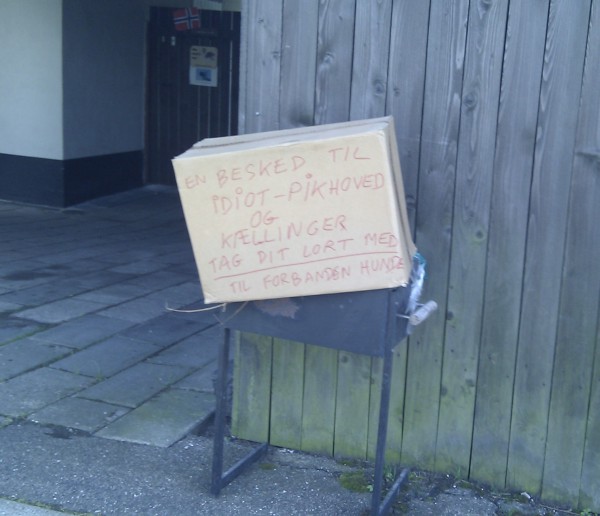 EN BESKED TIL
IDIOT-PIKHOVED
OG
KÆLLINGER
TAG DIT LORT MED
TIL FORBANDEN HUNDE